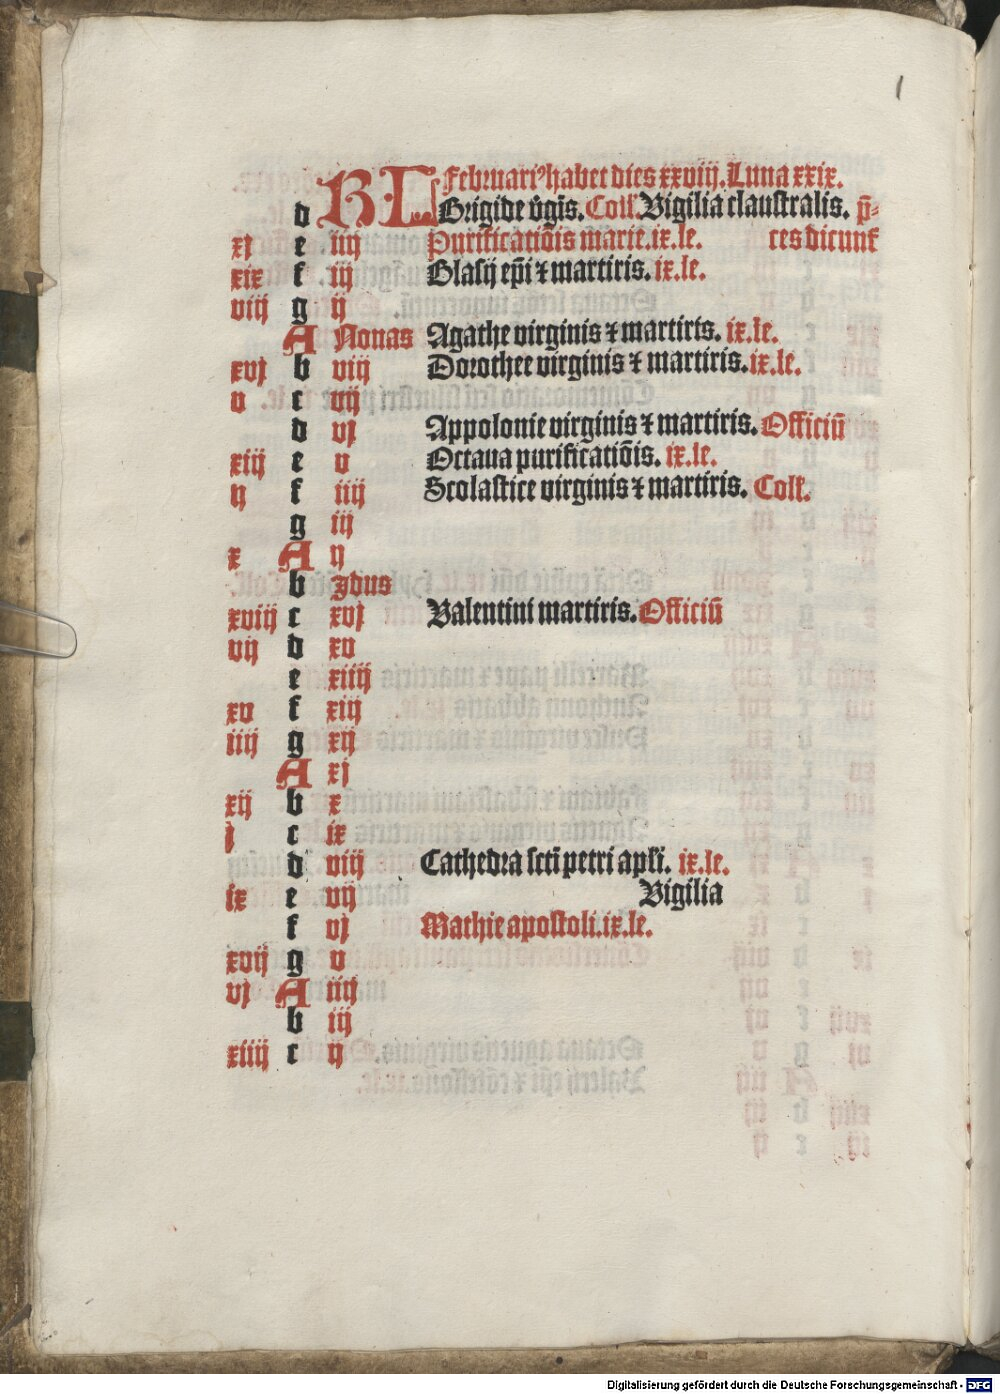 Februari⁹ habet dies xxviij. Luna xxix.
d KL Brigide v̄gīs. Coll. Vigilia claustralis. p̄⸗
xj e iiij Purificatiōis marie. ix. le. ces dicunt̄
xix f iij Blasij ep̄i ⁊ martiris. ix. le.
viij g ij
A Nonas Agathe virginis ⁊ martiris. ix. le.
xvj b viij Dorothee virginis ⁊ martiris. ix. le.
v c vij
d vj Appolonie virginis ⁊ martiris. Officiū
xiij e v Octaua purificatiōis. ix. le.
ij f iiij Scolastice virginis ⁊ martiris. Coll.
g iij
x A ij
b Idus
xviij c xvj Valentini martiris. Officiū
vij d xv
e xiiij
xv f xiij
iiij g xij
A xj
xij b x
j c ix
d viij Cathedra sctī petri apl̄i. ix. le.
ix e vij Vigilia
f vj Mathie apostoli. ix. le.
xvij g v
vj A iiij
b iij
xiiij c ij
Digitalisierung gefördert durch die Deutsche Forschungsgemeinschaft - DFG